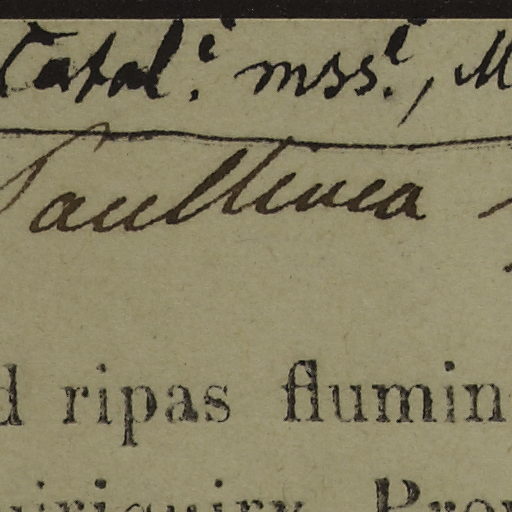 Catal.e mss.l, M
Paullinea
d ripas flumin